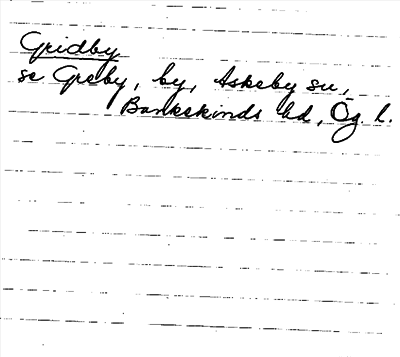 Gridby
se Greby, by, Askeby sn,
Bankekinds hd, Ög. l.